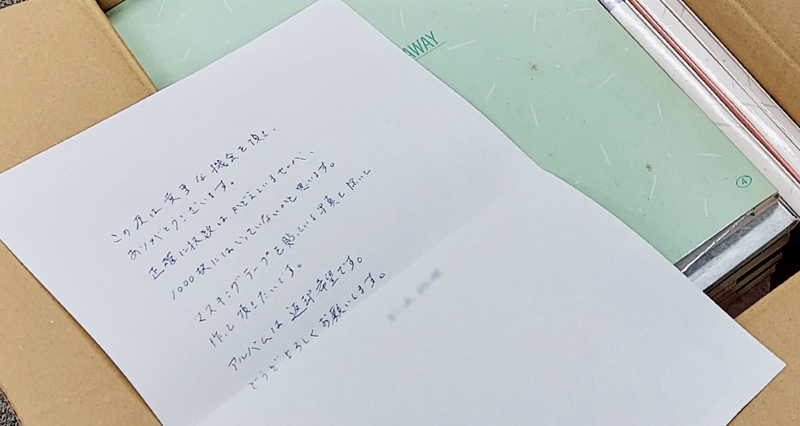 この度は貴重な機会を頂き、
ありがとうございます。
正確に枚数はかぞえていませんが、
1000枚にはいっていないかと思います。
マスキングテープを貼っている写真を除いて
作して頂きたいです。
アルバムは返却希望です。
どうぞよろしくお願いします。
AWAY
4